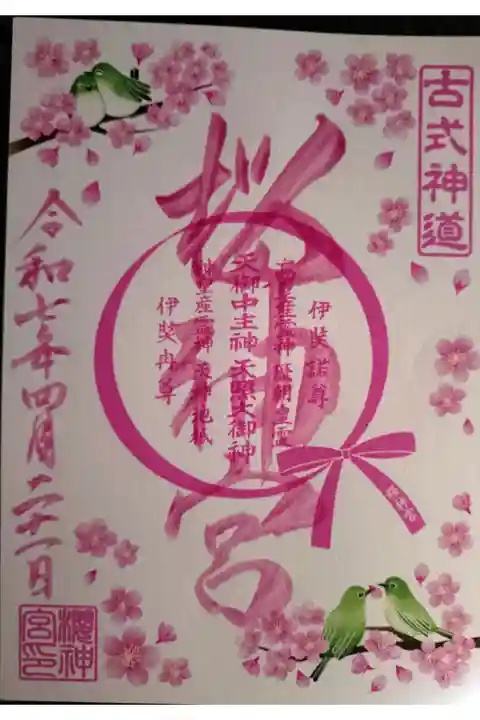 古式神道
伊奘諾尊
高皇産霊神 歴朝皇霊
天御中主神 天照大御神
神皇産霊神 天神地祇
伊奘冉尊
桜神宮
令和七年四月二十一日
櫻神
宮印